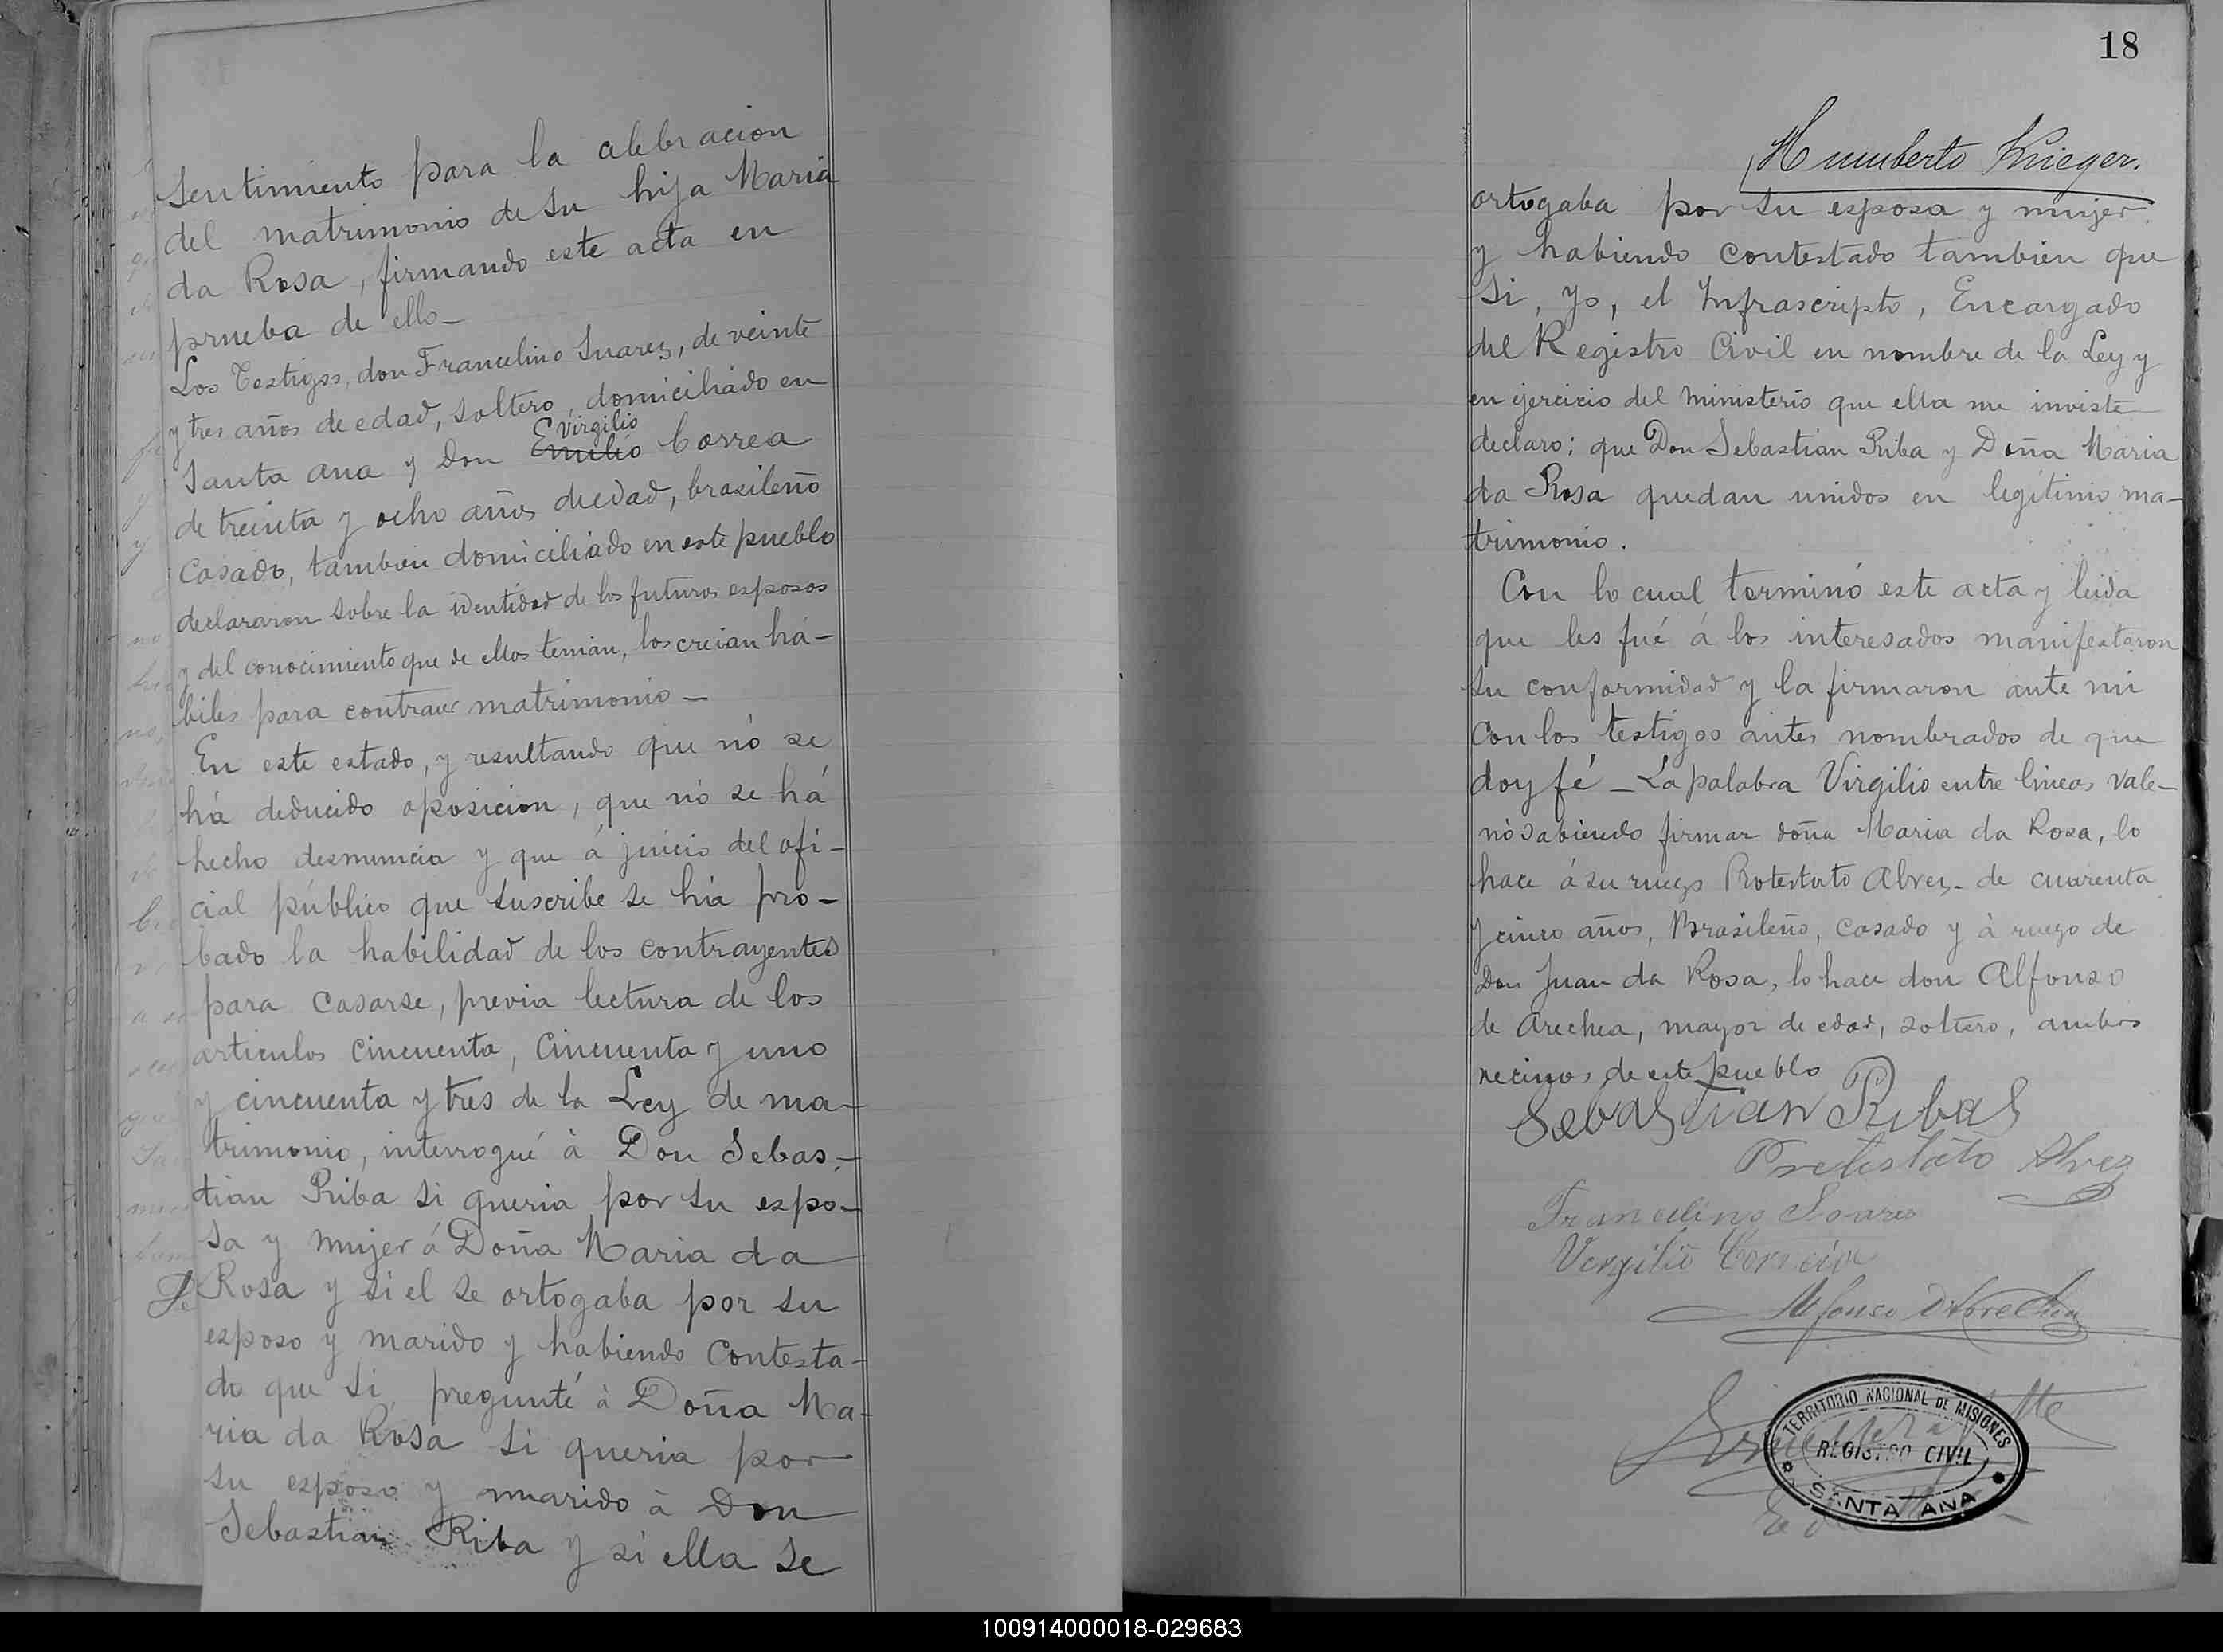 sentimiento para la celebracion
del matrimonio de su hija Maria
da Rosa, firmando este acta en
prueba de ello_
Los Testigos, don Francelino Suarez, de veinte
y tres años de edad, soltero, domiciliado en
Santa ana y don Emilio Virgilio Correa
de treinta y ocho años de edad, brasileño
casado, tambien domiciliado en este pueblo
declararon sobre la identidad de los futuros esposos
y del conocimiento que de ellos tenian, los creian há-
biles para contraer matrimonio_
En este estado, y resultando que nó se
há deducido oposicion, que nó se há
hecho desnuncia y que á juicio del ofi-
cial público que suscribe se há pro-
bado la habilidad de los contrayentes
para casarse, previa lectura de los
articulos cincuenta, cincuenta y uno
y cincuenta y tres de la Ley de ma-
trimonio, interrogué à Don Sebas-
tian Riba si queria por su espo-
sa y mujer á Doña Maria da
Rosa y si el se ortogaba por su
esposo y marido y habiendo contesta-
do que si, pregunté à Doña Ma-
ria da Rosa si queria por
su esposo y marido à Don
Sebastian Riba y si ella se
18
Humberto Krieger.
ortogaba por su esposa y mujer
y habiendo contestado tambien que
si, yo, el Infrascripto, Encargado
del Registro Civil en nombre de la Ley y
en ejercicio del ministerio que ella me inviste
declaro: que Don Sebastian Riba y Doña Maria
da Rosa quedan unidos en legítimo ma-
trimonio.
Con lo cual terminó este acta y leida
que les fué á los interesados manifestaron
su conformidad y la firmaron ante mi
con los testigos antes nombrados de que
doy fé _ La palabra Virgilio entre lineas vale_
nó sabiendo firmar doña Maria da Rosa, lo
hace á su ruego Protestato Alvez_ de cuarenta
y cinco años, Brasileño, casado y à ruego de
don Juan da Rosa, lo hace don Alfonso
de Arechea, mayor de edad, soltero, ambos
vecinos de este pueblo
Sebastian Ribas
Protestato Alvez
Francelino Soares
Vergilio Correia
Alfonso D'Arechea
TERRITORIO NACIONAL DE MISIONES
REGISTRO CIVIL
SANTA ANA
100914000018-029683